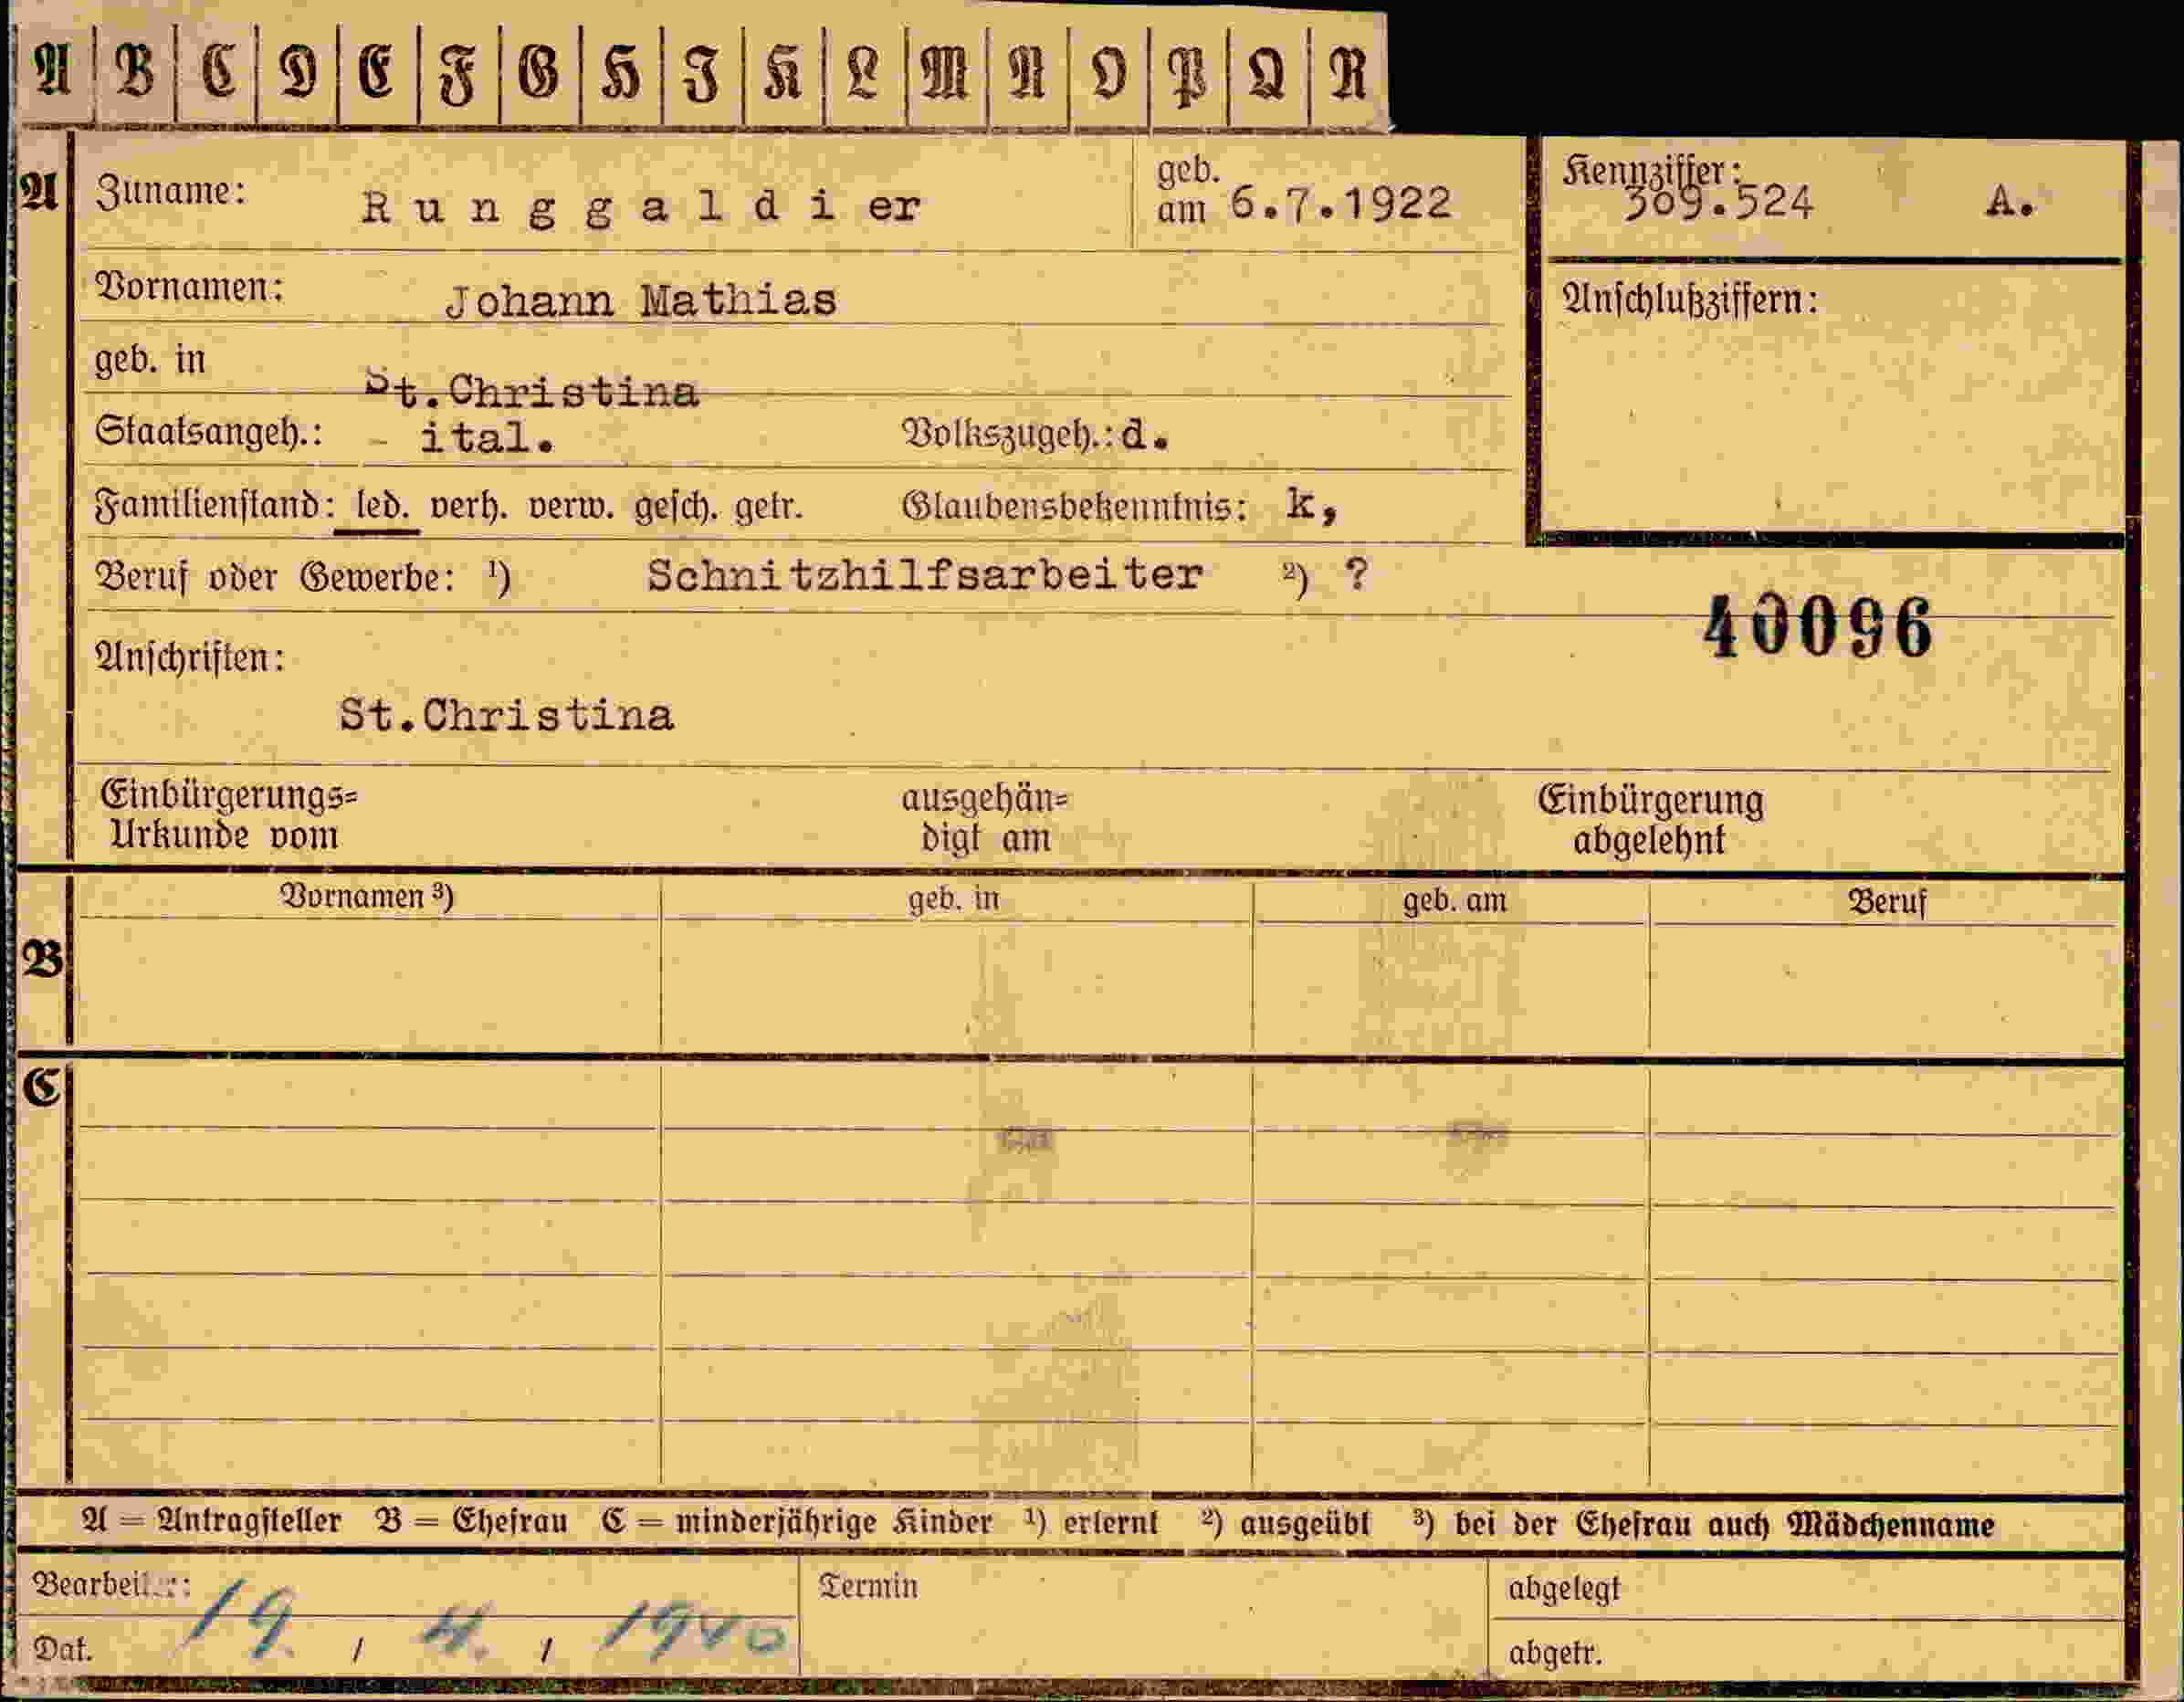 A B C D E F G H I K L M N O P Q R
A Zuname: Runggaldier geb. am 6.7.1922 Kennziffer: 309.524 A.
Vornamen: Johann Mathias Anschlußziffern:
geb. in St.Christina
Staatsangeh.: - ital. Volkszugeh.: d.
Familienstand: led. verh. verw. gesch. getr. Glaubensbekenntnis: k,
Beruf oder Gewerbe: ¹) Schnitzhilfsarbeiter ²) ?
40096
Anschriften:
St.Christina
Einbürgerungs= ausgehän= Einbürgerung
Urkunde vom digt am abgelehnt
Vornamen ³) geb. in geb. am Beruf
B
C
A = Antragsteller B = Ehefrau C = minderjährige Kinder ¹) erlernt ²) ausgeübt ³) bei der Ehefrau auch Mädchenname
Bearbeiter: Termin abgelegt
Dat. 19. / 4. / 1940 abgetr.